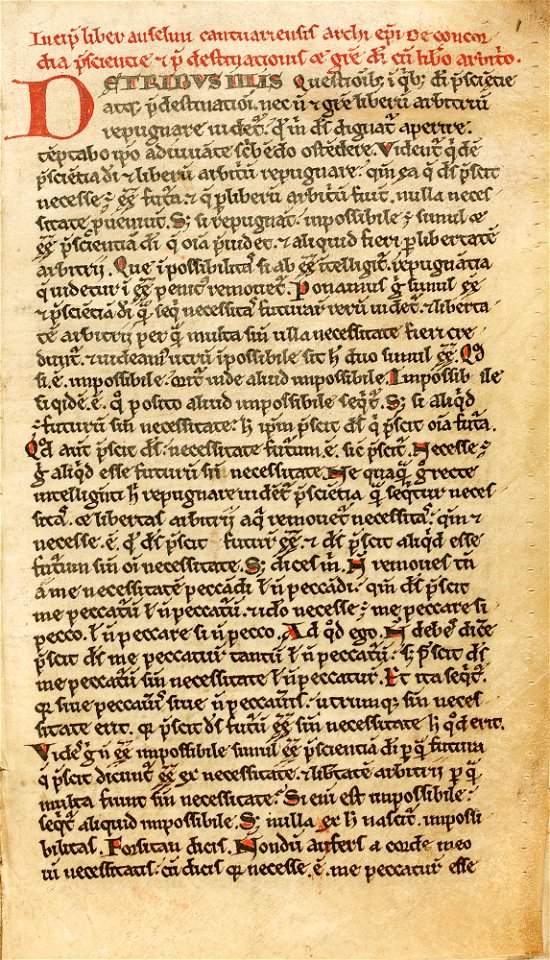 Incip liber anselmi cantuariensis archi epi De concor
dia pscientie et pdestinationis et gre di cu libero arbitrio.
DE TRIBUS ILLIS Questionib; i qb; di pscientie
atq; pdestinatioi, nec n et gre liberu arbitriu
repugnare videt. qm ds dignat aperire.
teptabo ipo adiuvate scbedo ostedere. Videnr qde
pscietia di et liberu arbitriu repugnare. qm ea q ds pscit
necesse e ee futa. et q p liberu arbitriu fiut. nulla neces
sitate pveniut. S; si repugnat. impossibile e simul ee
ee pscientia di q oia pvidet. et aliquid fieri p libertate
arbitrii. Que ipossibilitas si ab ee intelligit. repugnatia
q videtur i ee penit removet. Ponamus g simul ee
et pscietia di q seq necessitas futurar reru videt. et liberta
te arbitrii per q multa sin ulla necessitate fieri cre
dunt. et videam utru ipossibile sit h duo simul ee. Qd
si. e. impossibile. orit inde aliud impossibile. Impossib ile
siqide. e. q posito aliud impossibile seqt. S; si aliqd
e futuru sin necessitate. h ipm pscit ds q pscit oia futa.
Qd aut pscit ds. necessitate futum. e. sic pscit. Necesse e
g aliqd esse futuru sin necessitate. Ne quaq g recte
intelligenti h repugnare videt pscietia q sequtur neces
sitas. et libertas arbitrii a q removet necessitas. qm et
necesse. e. q ds pscit futur ee. et ds pscit aliqd esse
futurum sin oi necessitate. S; dices m. N removes tn
a me necessitate peccadi l n peccadi. qm ds pscit
me peccatu l n peccatu. et ido necesse e me peccare si
pecco. l n peccare si n pecco. Ad qd ego. N debes dice
pscit ds me peccatur tantu l n peccatu. s; pscit ds
me peccatu sin necessitate l n peccatur. Et ita seqt.
qr sive peccavis sive n peccavis. utrumq; sin neces
sitate erit. qr pscit ds futu ee sin necessitate h qd erit.
Vides g n ee impossibile simul ee pscientia di p q futura
q pscit dicunt ee ex necessitate. et libtate arbitrii p q
multa fiunt sin necessitate. Si eni est impossibile.
seqt aliquid impossibile. S; nulla ex h nascit impossi
bilitas. Forsitan dicis. Nondu aufers a corde meo
vi necessitatis. cu dicis qr necesse. e. me peccatur esse